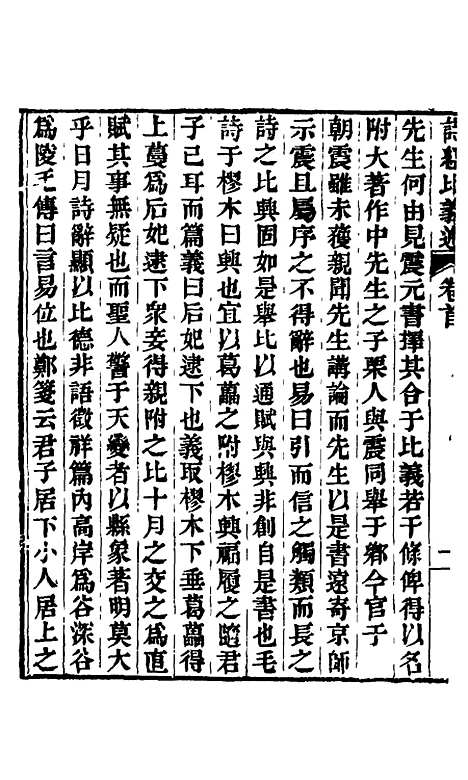 詩經比義述 卷首 二
先生何由見震元書擇其合于比義若干條俾得以名
附大著作中先生之子栗人與震同舉于鄉今官于
朝震雖未獲親聞先生講論而先生以是書遠寄京師
示震且屬序之不得辭也易曰引而信之觸類而長之
詩之比興固如是舉比以通賦與興非創自是書也毛
詩于樛木曰興也宜以葛藟之附樛木興福履之隨君
子已耳而篇義曰后妃逮下也義取樛木下垂葛藟得
上蔓爲后妃逮下衆妾得親附之比十月之交之爲直
賦其事無疑也而聖人警于天變者以縣象著明莫大
乎日月詩辭顯以比德非語徵祥篇內高岸爲谷深谷
爲陵毛傳曰言易位也鄭箋云君子居下小人居上之